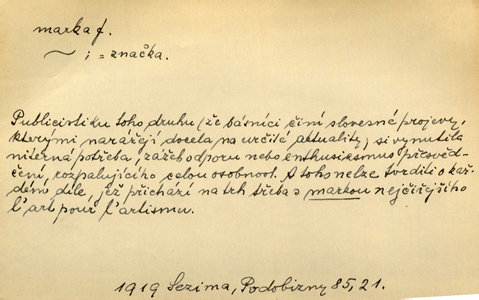 marka f.
~ ; = značka.
Publicistiku toho druhu (že básníci činí slovesné projevy,
kterými narážejí docela na určité aktuality) si vynutila
niterná potřeba, zážeh odporu nebo enthusiasmus přesvěd-
čení, rozpalujícího celou osobnost. A toho nelze tvrditi o kaž-
dém díle, jež přichází na trh třeba s markou nejčiřejšího
l'art pour l'artismu.
1919 Sezima, Podobizny 85, 21.